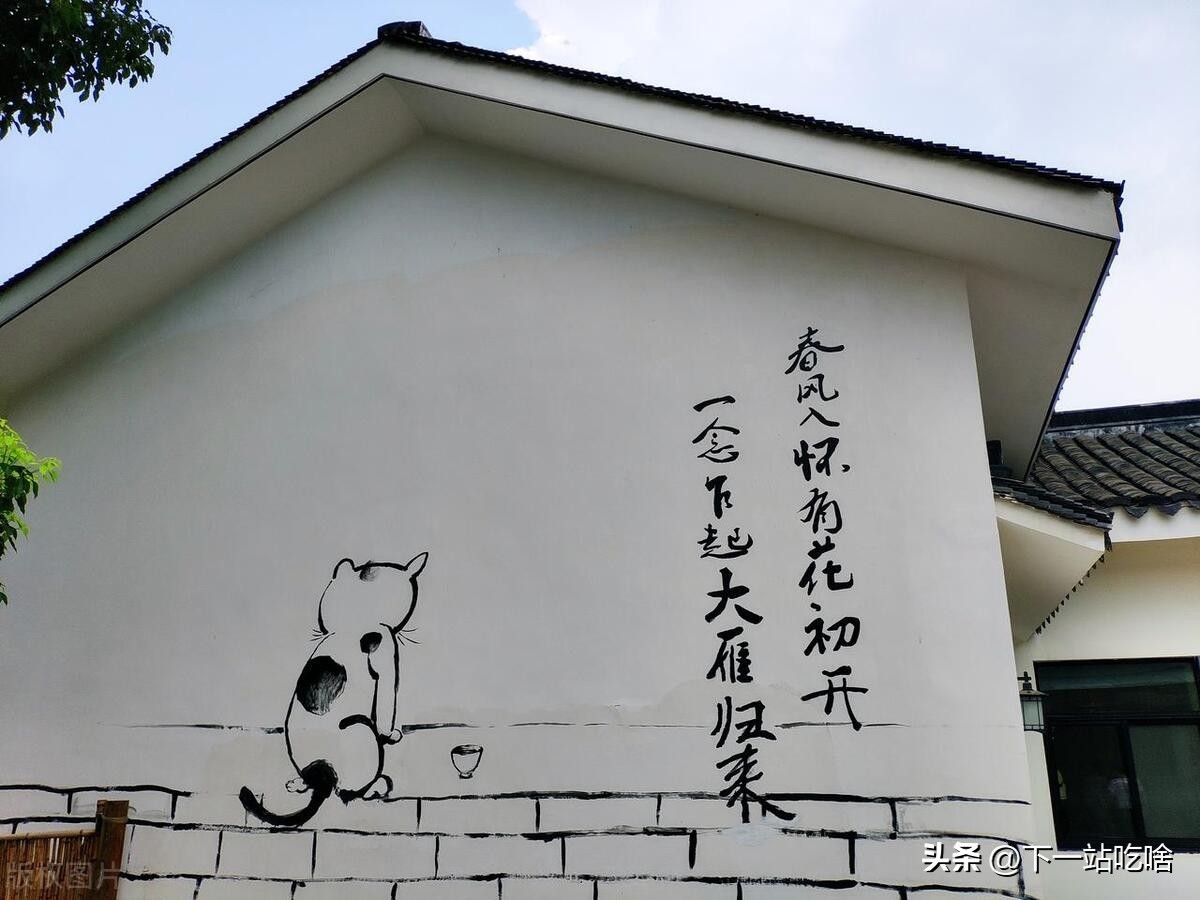 春风入怀有花初开
一念乍起大雁归来
版权图片
头条 @下一站吃啥